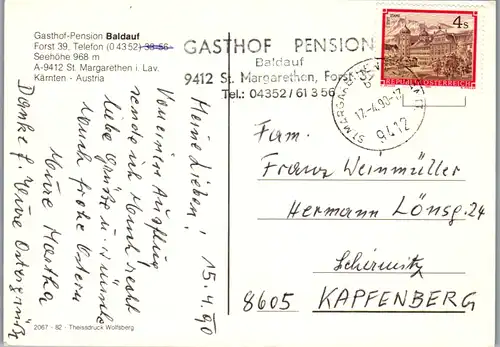 Gasthof-Pension Baldauf
Forst 39, Telefon (0 43 52) 38 56
Seehöhe 968 m
A-9412 St. Margarethen i. Lav.
Kärnten - Austria
GASTHOF PENSION
Baldauf
9412 St. Margarethen, Forst
Tel.: 04352/61 3 56
4 s
REPUBLIK ÖSTERREICH
17.-4.90-17
9412
15.4.90
Meine Lieben!
Von einem Ausflug
sende ich Euch recht
liebe Grüße u. wünsche
Euch frohe Ostern
Eure Martha
Danke f. Eure Ostergrüße
Fam.
Franz Weinmüller
Hermann Lönsg. 24
Schirmitz
8605 KAPFENBERG
2067 - 82 - Theissdruck Wolfsberg